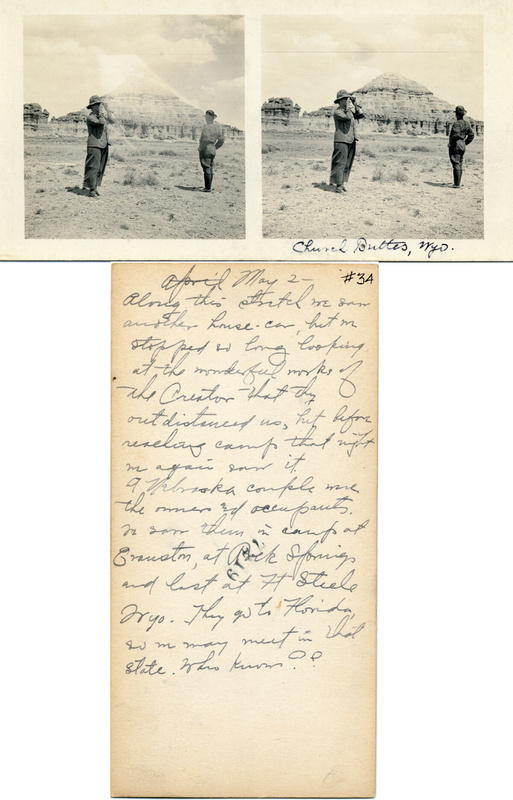 Church Buttes, Wyo.
April May 2- #34
Along this stretch we saw
another house-car, but we
stopped so long looking
at the wonderful works of
the Creator that they
outdistanced us, but before
reaching camp that night
we again saw it.
A Nebraska couple were
the owners & occupants.
We saw them in camp at
Evanston, at Rock Springs
and last at Ft Steele
Wyo. They go to Florida,
so we may meet in that
state. Who knows??